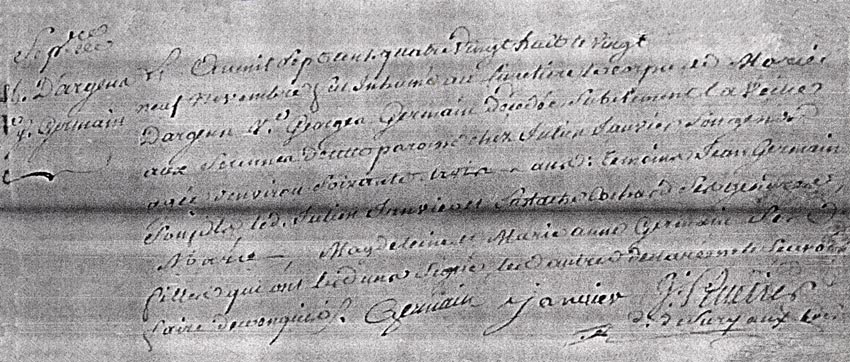 Sepre
D'argens
Ve Germain
L'an mil sept cent quatre vingt huit le vingt
neuf novembre a été inhumé au cimetière le corps de Marie
Dargens Ve Georges Germain décédée subitement la veille
aux de notre paroisse chez Julien Janvier son gendre
agée d'environ soixante trois ans. témoins Jean Germain
son fils, led. Julien Janvier et ses gendres,
Marie, Magdeleine et Marie anne Germain ses
filles qui ont les uns signé, les autres déclaré ne le savoir
faire de ce enquis. Germain Janvier